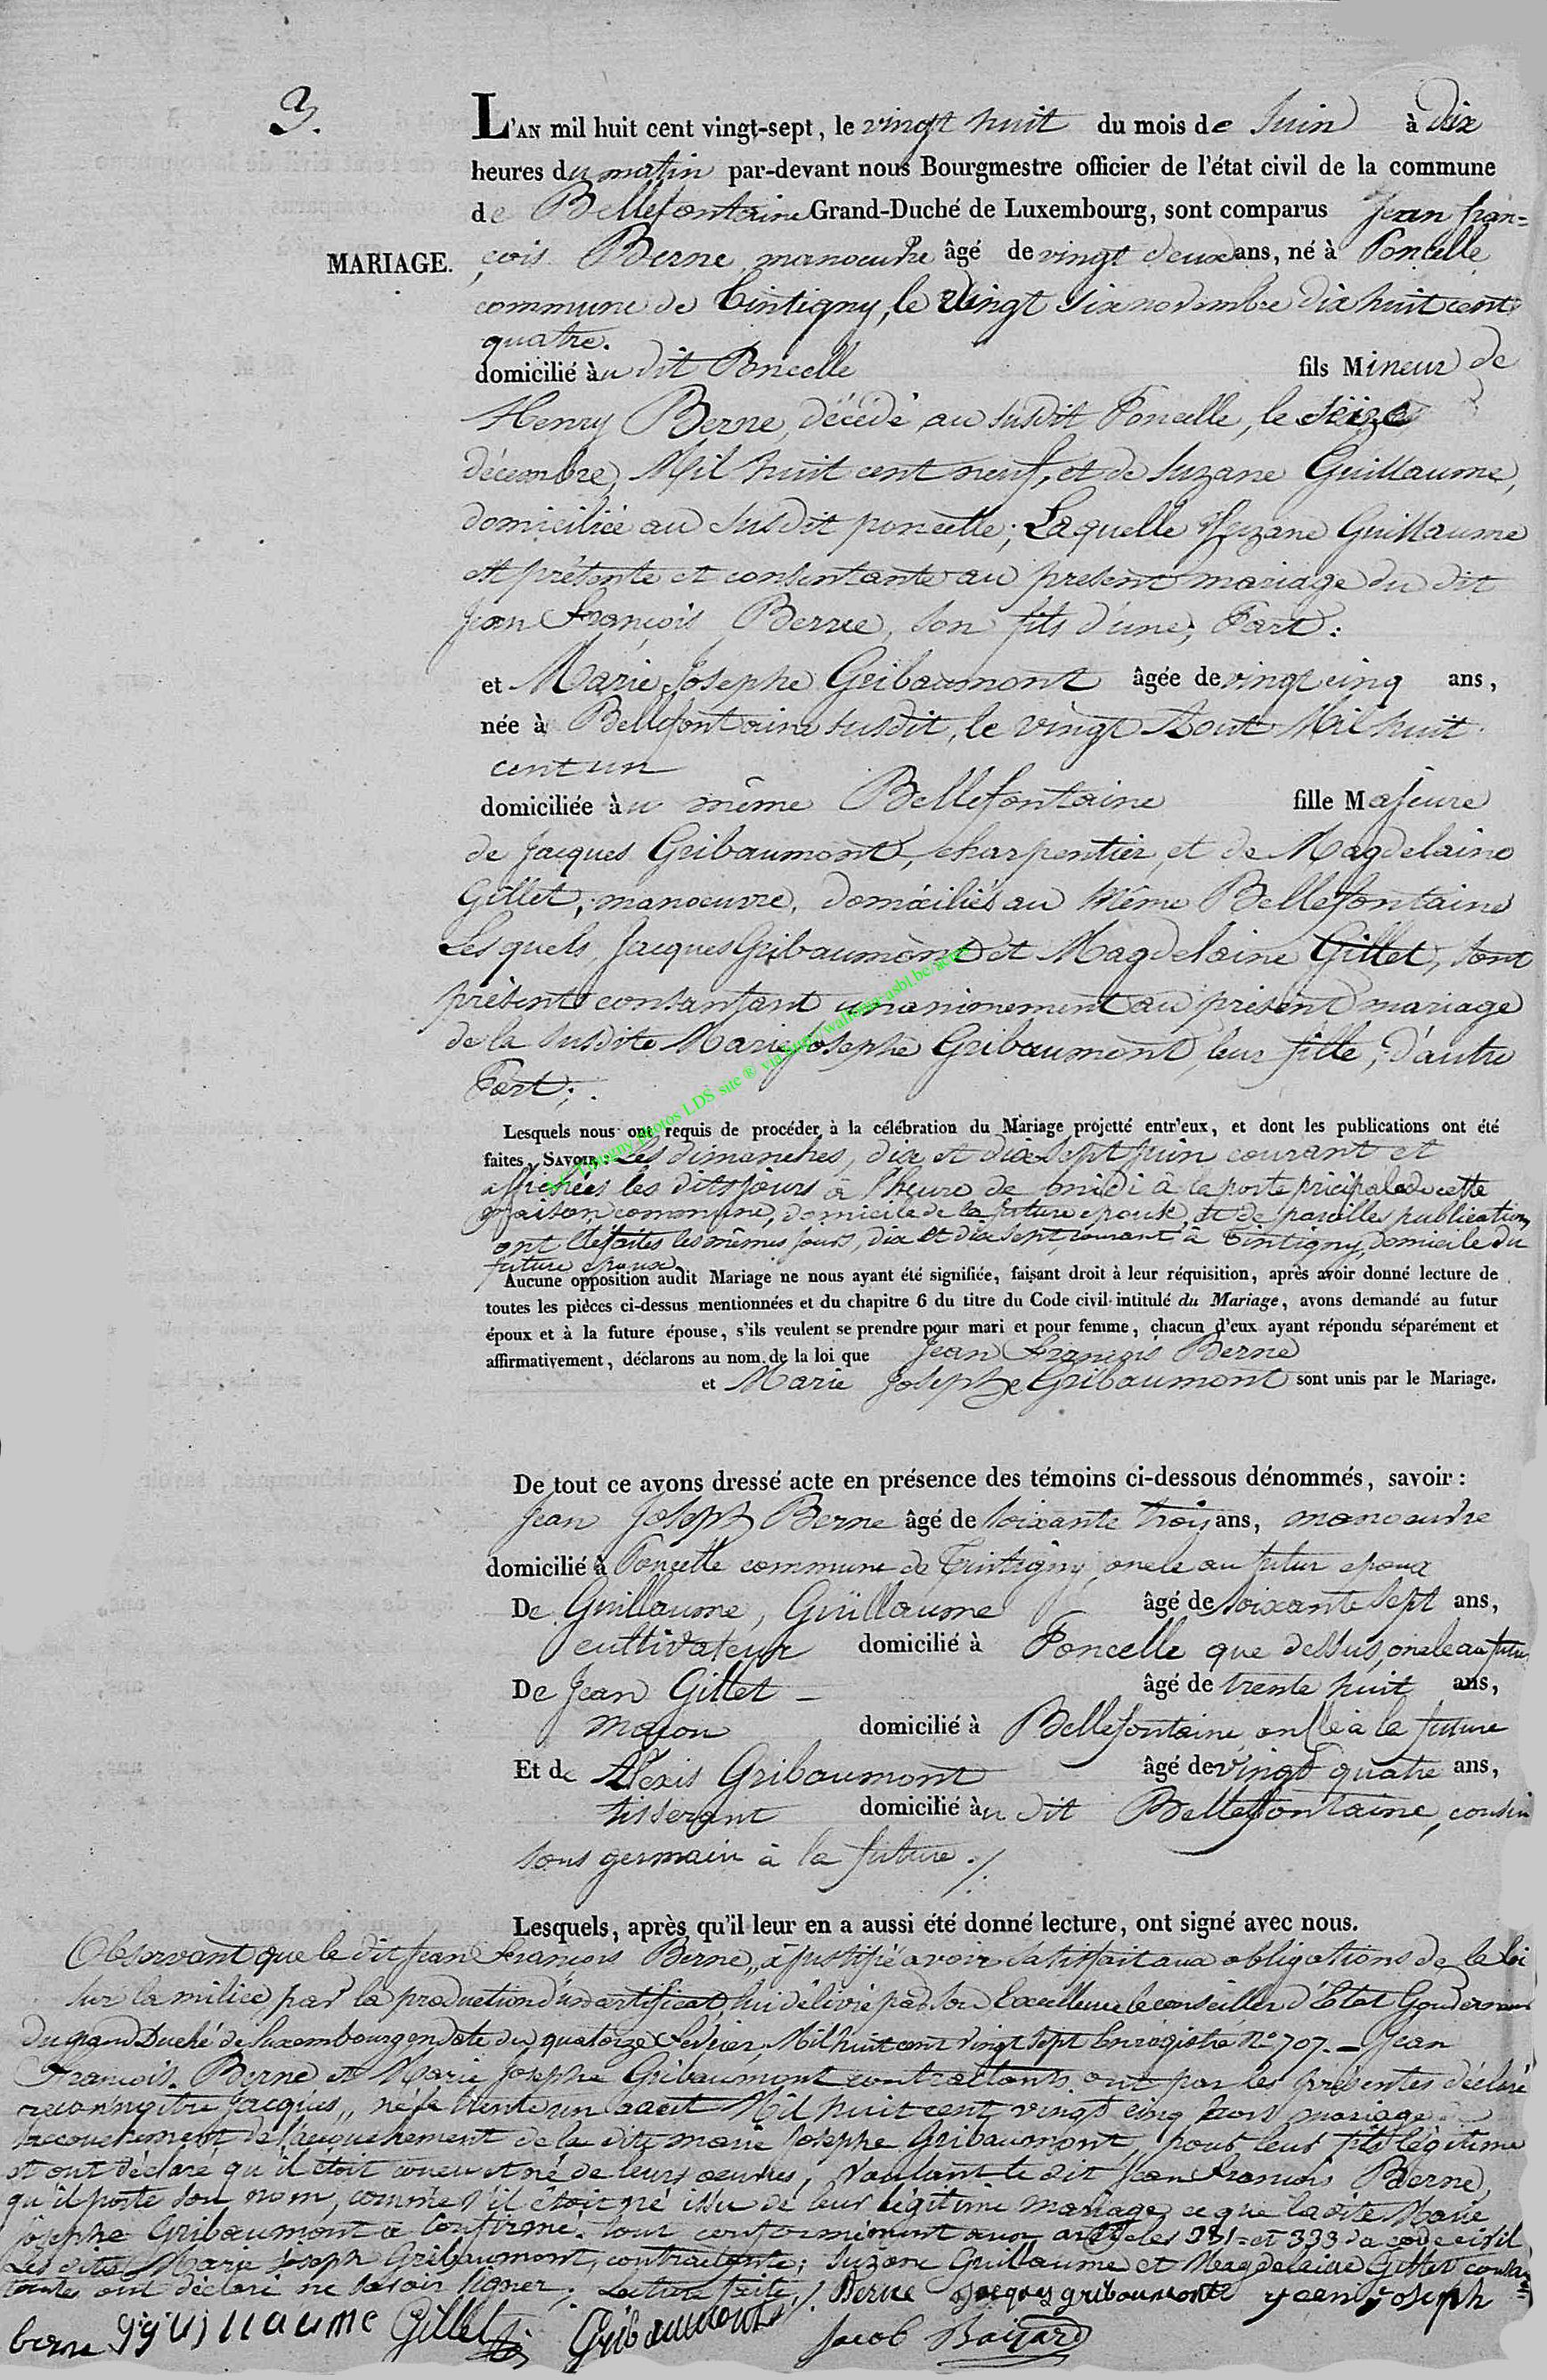 3.
L'AN mil huit cent vingt-sept, le vingt huit du mois de Juin à dix
heures du matin par-devant nous Bourgmestre officier de l'état civil de la commune
de Bellefontaine Grand-Duché de Luxembourg, sont comparus Jean fran=
MARIAGE.
çois Berne manoeuvre âgé de vingt deux ans, né à Poncelle
commune de Tintigny, le vingt six novembre dix huit cent
quatre.
domicilié au dit Poncelle fils Mineur de
Henry Berne, décédé au susdit Poncelle, le seize
décembre, Mil huit cent neuf, et de Suzane Guillaume,
domiciliée au susdit poncelle; Laquelle Suzane Guillaume
est présente et consentante au present mariage du dit
Jean François Berne, son fils d'une, Part:
et Marie Josephe Gribaumont âgée de vingt cinq ans,
née à Bellefontaine susdit, le vingt Aout Mil huit
cent un
domiciliée au même Bellefontaine fille Majeure
de Jacques Gribaumont, charpentier, et de Magdelaine
Gillet, manoeuvre, domiciliés au Même Bellefontaine
Lesquels Jacques Gribaumont et Magdelaine Gillet, sont
présents consantant unanimement au présent mariage
de la susdite Marie josephe Gribaumont, leur fille, d'autre
Part;.
Lesquels nous ont requis de procéder à la célébration du Mariage projetté entr'eux, et dont les publications ont été
faites, SAVOIR: Les dimanches, dix et dix sept juin courant et
affichées les dits jours à l'heure de midi à la porte pricipale de cette
maison commune, domicile de la future epouse, et de pareilles publications
ont été faites les mêmes jours, dix et dix sept courant à Tintigny domicile du
future epoux.
Aucune opposition audit Mariage ne nous ayant été signifiée, faisant droit à leur réquisition, après avoir donné lecture de
toutes les pièces ci-dessus mentionnées et du chapitre 6 du titre du Code civil intitulé du Mariage, avons demandé au futur
époux et à la future épouse, s'ils veulent se prendre pour mari et pour femme, chacun d'eux ayant répondu séparément et
affirmativement, déclarons au nom de la loi que Jean François Berne
et Marie Josephe Gribaumont sont unis par le Mariage.
De tout ce avons dressé acte en présence des témoins ci-dessous dénommés, savoir:
Jean Joseph Berne âgé de soixante trois ans, manoeuvre
domicilié à Poncelle commune de Tintigny, oncle au futur epoux
De Guillaume, Guillaume âgé de soixante sept ans,
cultivateur domicilié à Poncelle que dessus, oncle au futur
De Jean Gillet âgé de trente huit ans,
maçon domicilié à Bellefontaine, oncle à la future
Et de Alexis Gribaumont âgé de vingt quatre ans,
tisserant domicilié au dit Bellefontaine, cousin
sous germain à la future./.
Lesquels, après qu'il leur en a aussi été donné lecture, ont signé avec nous.
Observant que le dit Jean François Berne, à justifié avoir satisfait aux obligations de la loi
sur la milice par la production d'un certificat, lui délivré par son Excellence le conseiller d'Etat Gouverneur
du grand Duché de Luxembourg en date du quatorze fevrier, Mil huit cent vingt sept Enregistré N° 707. Jean
François Berne et Marie Josephe Gribaumont contractants ont par les présentes déclaré
reconnoitre Jacques, né le trente un aout Mil huit cent vingt cinq hors mariage
de l'accouchement de la dite marie Josephe Gribaumont, pour leur fils légitime
et ont déclaré qu'il étoit conçu et né de leurs oeuvres, voulant le dit Jean François Berne,
qu'il porte son nom, comme s'il étoit né issu de leur légitime mariage, ce que la dite Marie
Josephe Gribaumont a Confirmé. tout conformément aux articles 331 et 333 du code civil
Les dites Marie Joseph Gribaumont, contractante; Suzane Guillaume et Magdelaine Gillet consen=
tantes ont déclaré ne savoir signer. Lecture faite./. Berne Jacques gribaumont jean joseph
berne guillaume Gillet Gribaumont Jacob